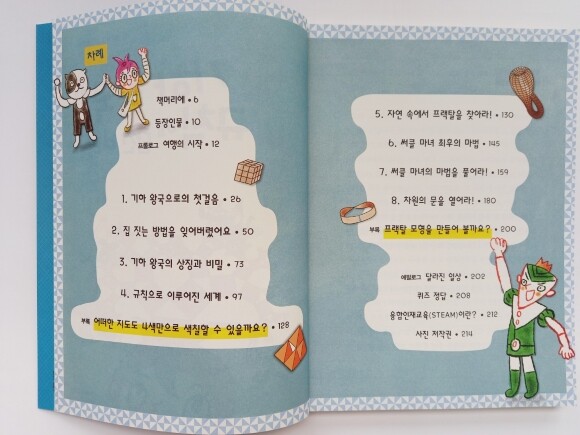 차례
책머리에 • 6
등장인물 • 10
프롤로그 여행의 시작 • 12
1. 기하 왕국으로의 첫걸음 • 26
2. 집 짓는 방법을 잊어버렸어요 • 50
3. 기하 왕국의 상징과 비밀 • 73
4. 규칙으로 이루어진 세계 • 97
부록 어떠한 지도도 4색만으로 색칠할 수 있을까요? • 128
5. 자연 속에서 프랙탈을 찾아라! • 130
6. 써클 마녀 최후의 마법 • 145
7. 써클 마녀의 마법을 풀어라! • 159
8. 차원의 문을 열어라! • 180
부록 프랙탈 모형을 만들어 볼까요? • 200
에필로그 달라진 일상 • 202
퀴즈 정답 • 208
융합인재교육(STEAM)이란? • 212
사진 저작권 • 214